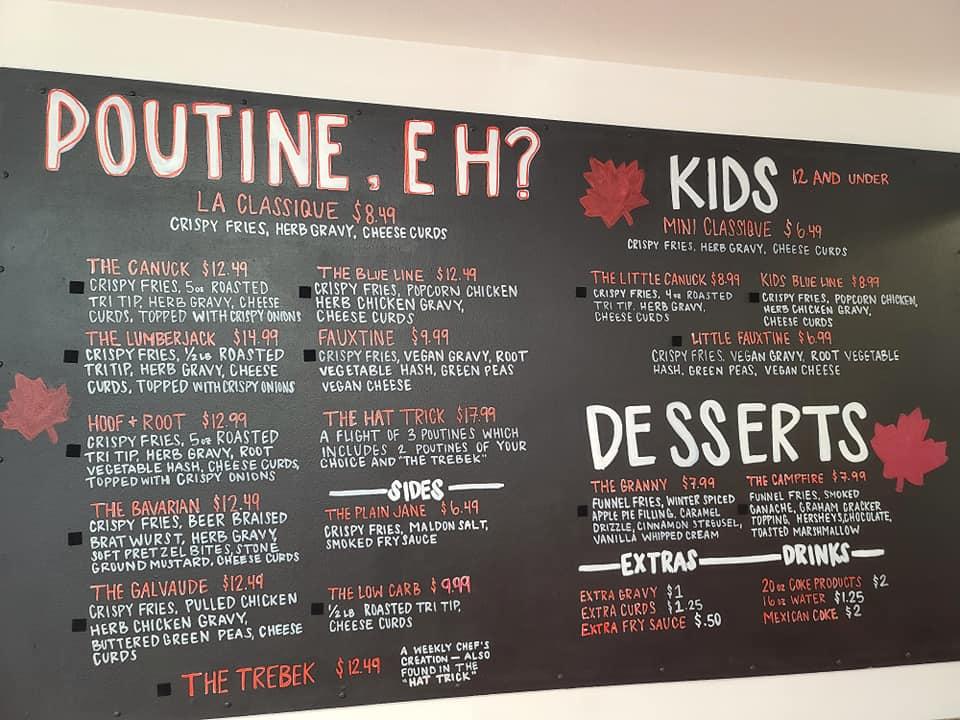 POUTINE, EH?
LA CLASSIQUE $8.49
CRISPY FRIES, HERB GRAVY, CHEESE CURDS
THE CANUCK $12.49
CRISPY FRIES, 5oz ROASTED
TRI TIP, HERB GRAVY, CHEESE
CURDS, TOPPED WITH CRISPY ONIONS
THE LUMBERJACK $14.99
CRISPY FRIES, 1/2 LB ROASTED
TRI TIP, HERB GRAVY, CHEESE
CURDS, TOPPED WITH CRISPY ONIONS
HOOF + ROOT $12.99
CRISPY FRIES, 5oz ROASTED
TRI TIP, HERB GRAVY, ROOT
VEGETABLE HASH, CHEESE CURDS,
TOPPED WITH CRISPY ONIONS
THE BAVARIAN $12.49
CRISPY FRIES, BEER BRAISED
BRATWURST, HERB GRAVY,
SOFT PRETZEL BITES, STONE
GROUND MUSTARD, CHEESE CURDS
THE GALVAUDE $12.49
CRISPY FRIES, PULLED CHICKEN
HERB CHICKEN GRAVY,
BUTTERED GREEN PEAS, CHEESE
CURDS
THE BLUE LINE $12.49
CRISPY FRIES, POPCORN CHICKEN
HERB CHICKEN GRAVY,
CHEESE CURDS
FAUXTINE $9.99
CRISPY FRIES, VEGAN GRAVY, ROOT
VEGETABLE HASH, GREEN PEAS
VEGAN CHEESE
THE HAT TRICK $17.99
A FLIGHT OF 3 POUTINES WHICH
INCLUDES 2 POUTINES OF YOUR
CHOICE AND "THE TREBEK"
SIDES
THE PLAIN JANE $6.49
CRISPY FRIES, MALDON SALT,
SMOKED FRY SAUCE
THE LOW CARB $9.99
1/2 LB ROASTED TRI TIP,
CHEESE CURDS
THE TREBEK $12.49
A WEEKLY CHEF'S
CREATION - ALSO
FOUND IN THE
"HAT TRICK"
KIDS 12 AND UNDER
MINI CLASSIQUE $6.49
CRISPY FRIES, HERB GRAVY, CHEESE CURDS
THE LITTLE CANUCK $8.99
CRISPY FRIES, 4oz ROASTED
TRI TIP, HERB GRAVY,
CHEESE CURDS
KIDS BLUE LINE $8.99
CRISPY FRIES, POPCORN CHICKEN,
HERB CHICKEN GRAVY,
CHEESE CURDS
LITTLE FAUXTINE $6.99
CRISPY FRIES, VEGAN GRAVY, ROOT VEGETABLE
HASH, GREEN PEAS, VEGAN CHEESE
DESSERTS
THE GRANNY $7.99
FUNNEL FRIES, WINTER SPICED
APPLE PIE FILLING, CARAMEL
DRIZZLE, CINNAMON STREUSEL,
VANILLA WHIPPED CREAM
THE CAMPFIRE $7.99
FUNNEL FRIES, SMOKED
GANACHE, GRAHAM CRACKER
TOPPING, HERSHEYS CHOCOLATE,
TOASTED MARSHMALLOW
EXTRAS
EXTRA GRAVY $1
EXTRA CURDS $1.25
EXTRA FRY SAUCE $.50
DRINKS
20oz COKE PRODUCTS $2
16oz WATER $1.25
MEXICAN COKE $2